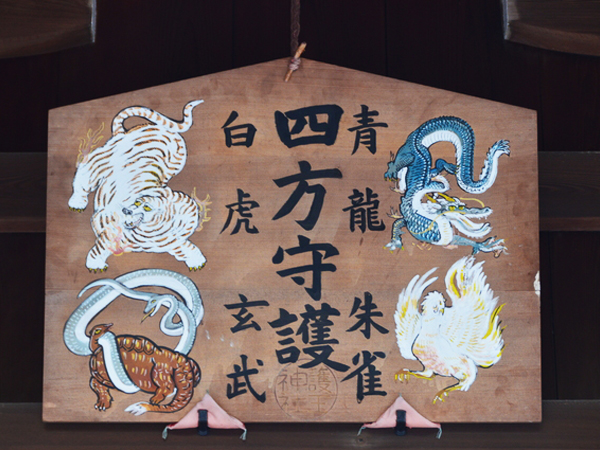 青龍
朱雀
四方守護
白虎
玄武